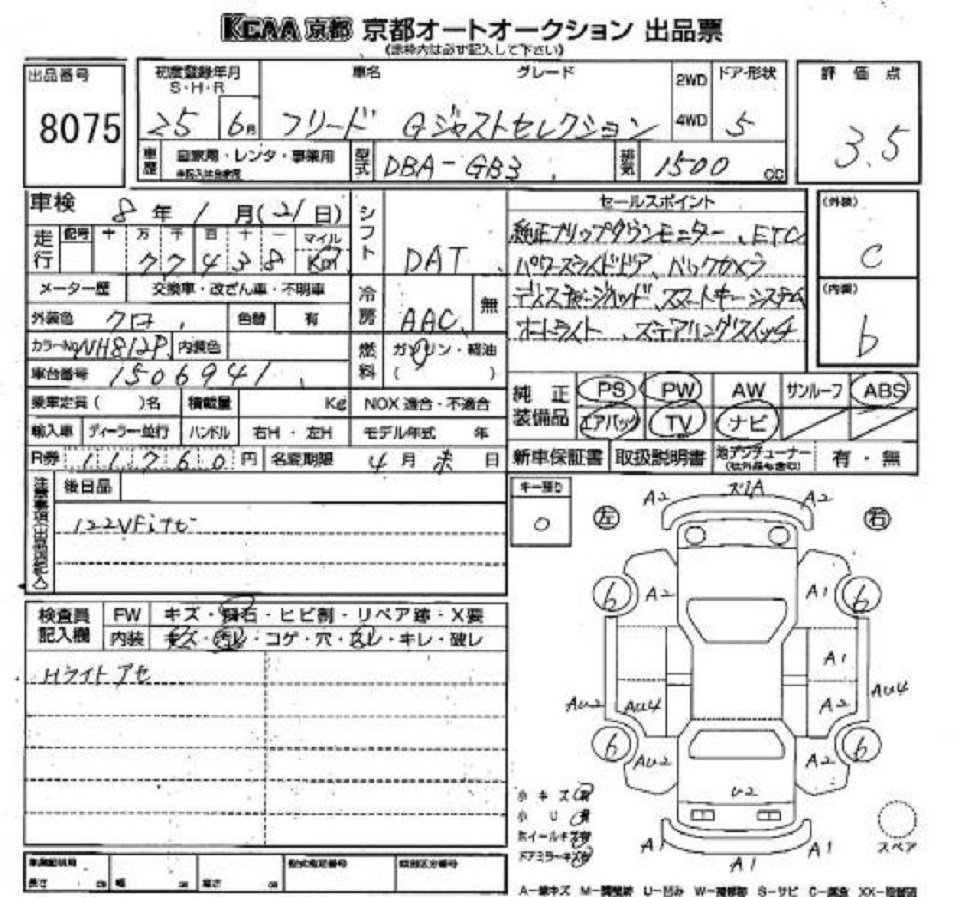 KCAA京都 京都オートオークション 出品票
(漆枠内は必ず記入して下さい)
出品番号
8075
初度登録年月
S・H・R
25 6月
車名 グレード
フリード Gジャストセレクション
2WD
4WD
ドア・形状
5
評価点
3.5
車歴 自家用・レンタ・事業用
型式 DBA-GB3
排気 1500 cc
車検 8年1月(21日)
走行 記号 十 万 千 百 十 一 マイル
77438 Km
メーター歴 交換車・改ざん車・不明車
外装色 クロ 色替 有
カラーNo NH812P 内装色
車台番号 1506941
乗車定員( )名 積載量 Kg NOX適合・不適合
輸入車 ディーラー・並行 ハンドル 右H・左H モデル年式 年
R券 11,760円 名変期限 4月末日
シフト DAT
冷房 AAC 無
燃料 ガソリン・軽油
( )
セールスポイント
純正フリップダウンモニター、ETC
パワースライドドア、バックカメラ
ディスチャージヘッド、スマートキーシステム
オートライト、ステアリングスイッチ
(外装)
C
(内装)
b
純正装備品 PS PW AW サンルーフ ABS
エアバッグ TV ナビ
新車保証書 取扱説明書 地デジチューナー 有・無
注意事項(出品店記入)
後日品
122VFiナビ
キー預り
○
検査員記入欄
FW キズ・飛石・ヒビ割・リペア跡・X要
内装 キズ・汚レ・コゲ・穴・スレ・キレ・破レ
Hライトアセ
左 右
A2 ズレA A2
6 A2 A1 6
A1
AU2 AU4 A2 AU4
6 AU2 A2 6
U2
A1 A1 A1
スペア
小キズ有
小U有
ホイールキズ有
ドアミラーキズ有
型式指定番号 類別区分番号
長さ cm 幅 cm 高さ cm
A-線キズ U-凹み S-サビ